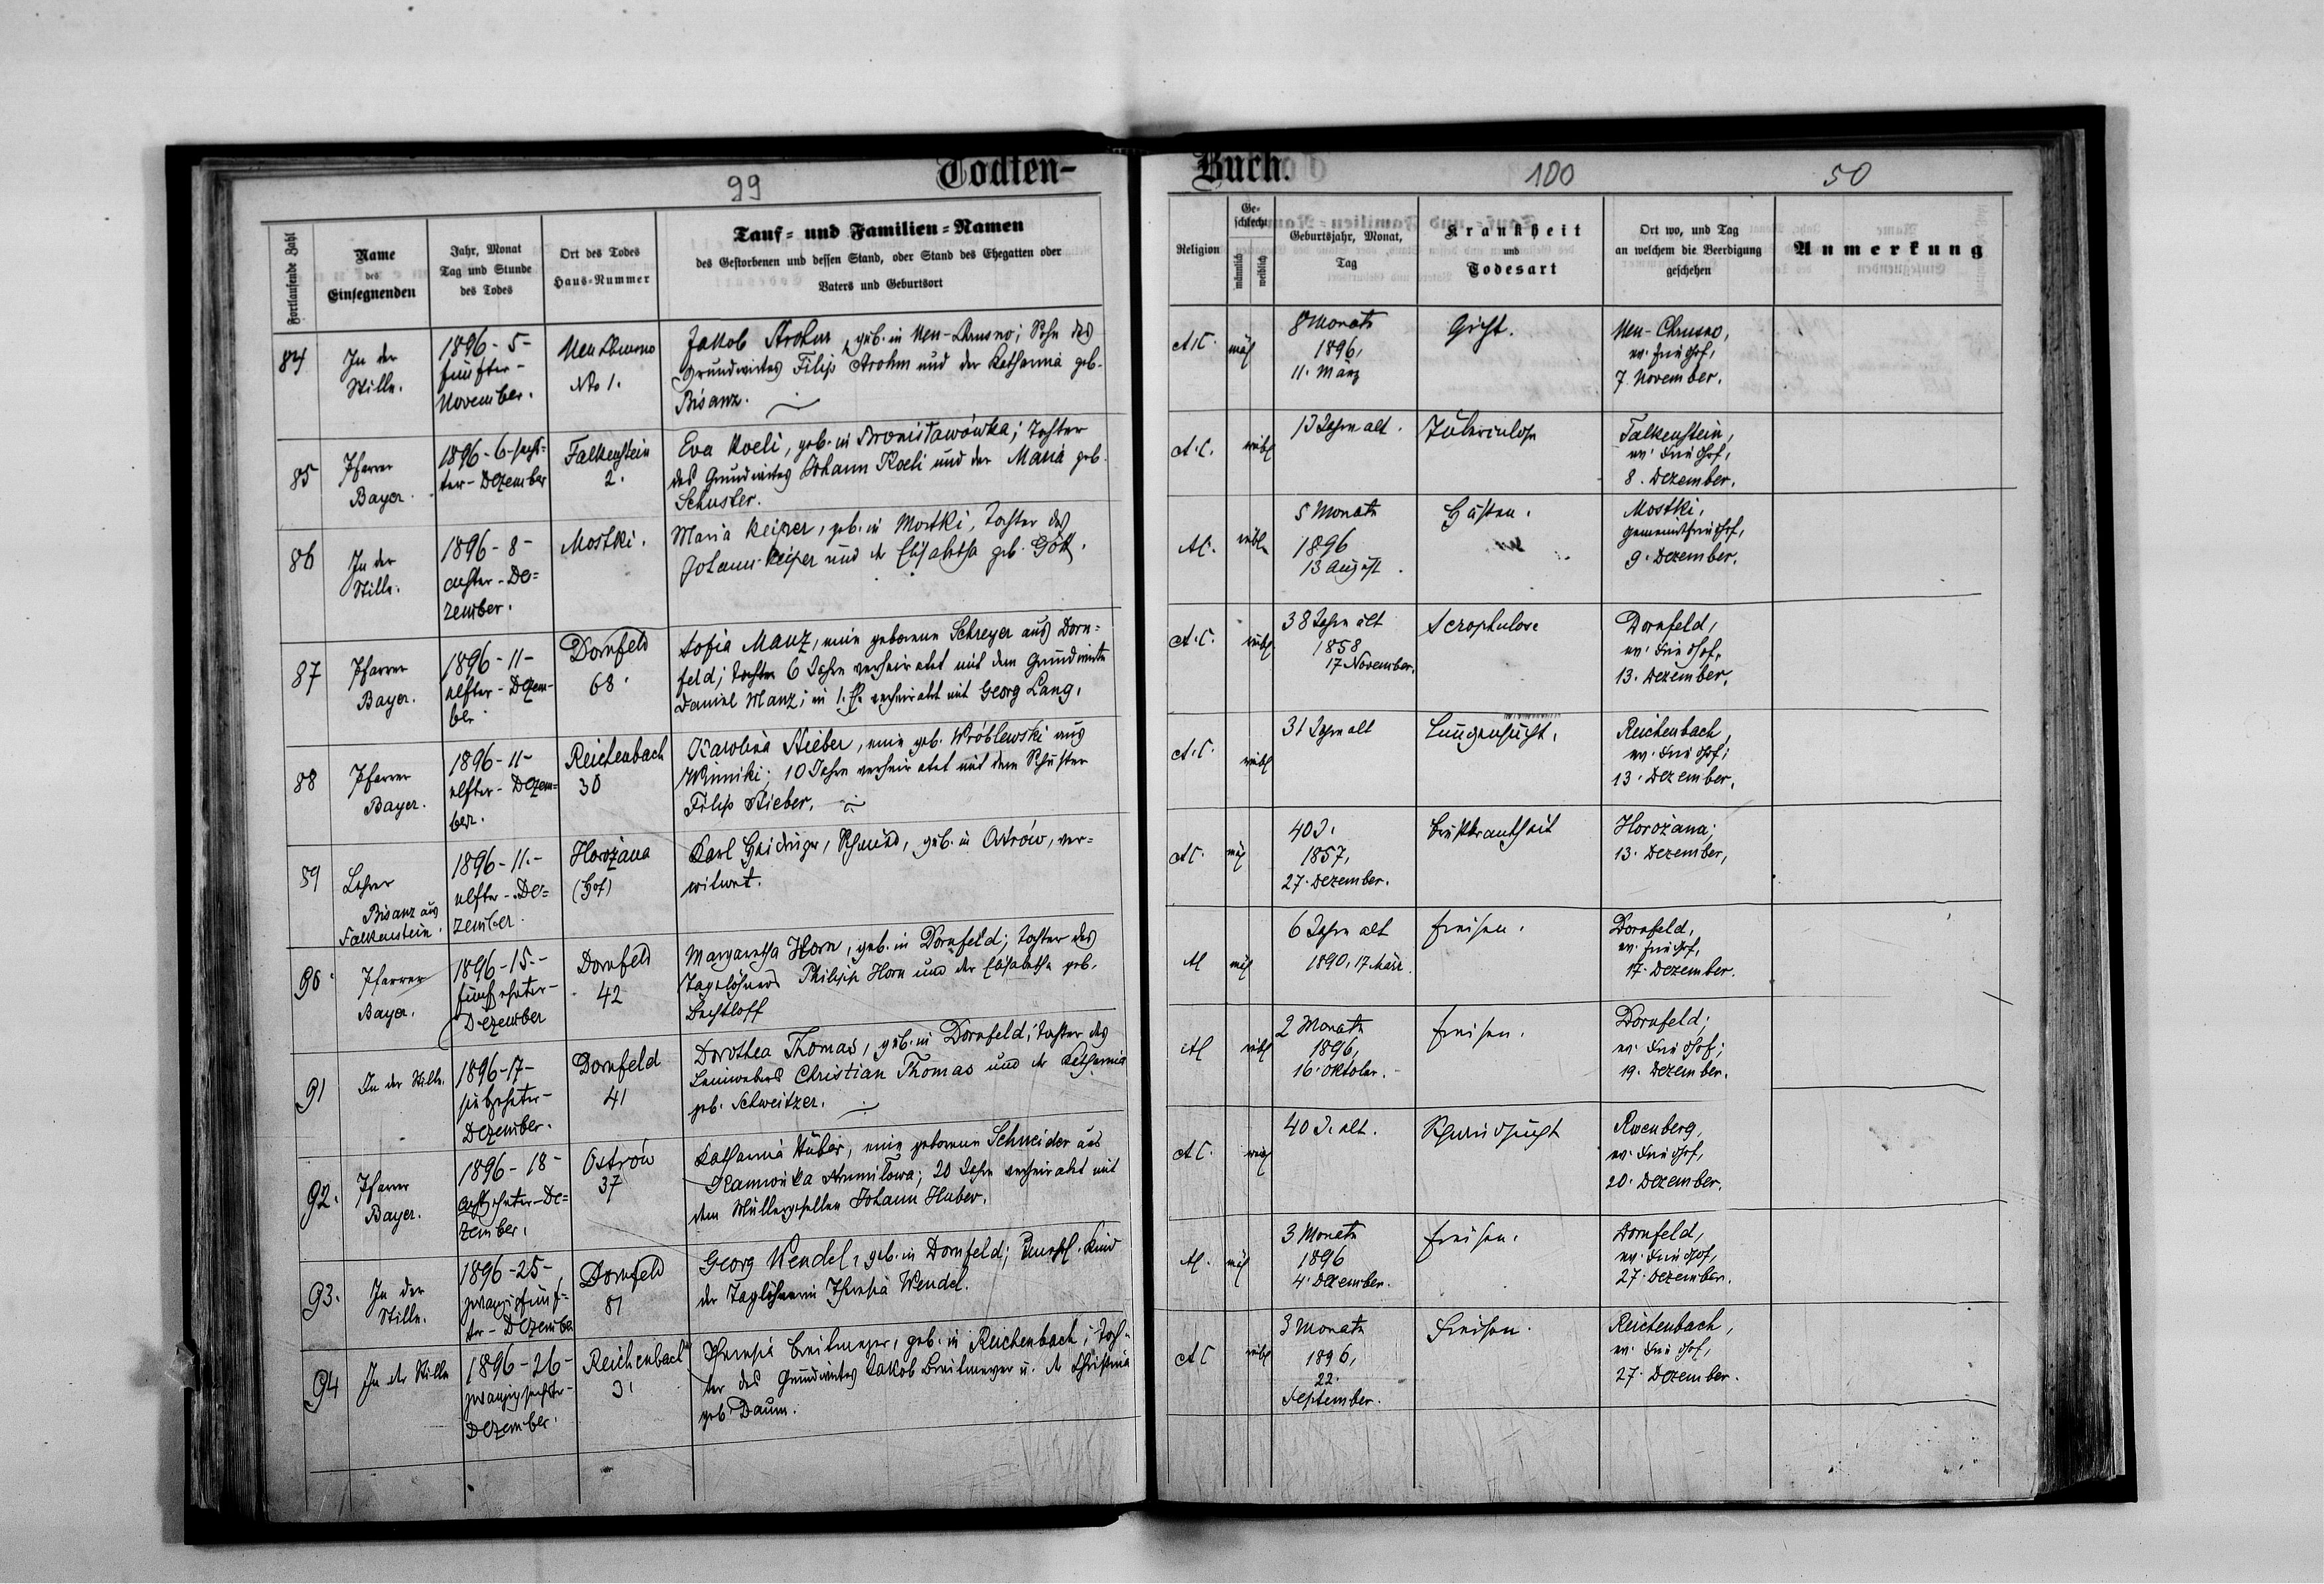 Todten-
Buch.
99
100
50
Fortlaufende Zahl
Name
des
Einsegnenden
Jahr, Monat
Tag und Stunde
des Todes
Ort des Todes
Haus-Nummer
Tauf- und Familien-Namen
des Gestorbenen und dessen Stand, oder Stand des Ehegatten oder
Vaters und Geburtsort
Religion
Ge-
schlecht
männlich
weiblich
Geburtsjahr, Monat,
Tag
Krankheit
und
Todesart
Ort wo, und Tag
an welchem die Beerdigung
geschehen
Anmerkung
84
In der
Stille.
1896 - 5 -
fünfter -
November.
Neu Chrusno
No 1.
Jakob Arohm, geb. in Neu-Chrusno; Sohn des
Grundwirtes Filip Arohm und der Katharina geb.
Bisanz.
A.C.
mäl
8 Monate
1896,
11. März
Gicht.
Neu-Chrusno,
ev. Friedhof,
7. November.
85
Pfarrer
Bayer.
1896 - 6 - sechs-
ter - Dezember
Falkenstein
2.
Eva Koeli, geb. in Bronisławówka; Tochter
des Grundwirtes Johann Koeli und der Maria geb.
Schuster.
A.C.
weibl
13 Jahre alt.
Tuberculose
Falkenstein,
ev. Friedhof,
8. Dezember.
86
In der
Stille.
1896 - 8 -
achter - De=
zember.
Mostki.
Maria Keiper, geb. in Mostki, Tochter des
Johann Keiper und der Elisabetha geb. Gött.
AC.
weibl
5 Monate
1896
13 August.
Husten.
Mostki,
Gemeindefriedhof,
9. Dezember.
87
Pfarrer
Bayer.
1896 - 11 -
elfter - Dezem-
ber
Dornfeld
68.
Sofia Manz, eine geborene Schreyer aus Dorn=
feld; Tochter 6 Jahre verheiratet mit dem Grundwirte
Daniel Manz; in 1. E. verheiratet mit Georg Lang.
A.C.
weibl
38 Jahre alt
1858
17 November.
Scrophulose
Dornfeld,
ev. Friedhof,
13. Dezember.
88
Pfarrer
Bayer.
1896 - 11 -
elfter - Dezem=
ber.
Reichenbach
30
Karolina Stieber, eine geb. Wróblewski aus
Winniki; 10 Jahre verheiratet mit dem Schuster
Filip Stieber.
A.C.
weibl
31 Jahre alt
Lungensucht.
Reichenbach,
ev. Friedhof;
13. Dezember.
89
Lehrer
Bisanz aus
Falkenstein.
1896 - 11. -
elfter - De=
zember.
Horożana
(Hof)
Karl Heidinger, Schmied, geb. in Ostrów, ver=
witwet.
AC.
mäl
40 J.
1857,
27. Dezember.
Brustkrankheit
Horożana;
13. Dezember,
90
Pfarrer
Bayer.
1896 - 15. -
fünfzehnter -
Dezember
Dornfeld
42
Margaretha Horn, geb. in Dornfeld; Tochter des
Taglöhners Philipp Horn und der Elisabetha geb.
Bechtloff
AC
mäl
6 Jahre alt
1890, 17 März.
Freisen.
Dornfeld,
ev. Friedhof,
17. Dezember.
91
In der Stille.
1896 - 17 -
siebzehnter -
Dezember.
Dornfeld
41
Dorothea Thomas, geb. in Dornfeld; Tochter des
Leinwebers Christian Thomas und der Katharina
geb. Schweitzer.
AC
weibl
2 Monate
1896,
16. Oktober.
Freisen.
Dornfeld;
ev. Friedhof;
19. Dezember.
92.
Pfarrer
Bayer.
1896 - 18 -
achtzehnter - De=
zember.
Ostrów
37
Katharina Huber, eine geborene Schneider aus
Kamionka Strumiłowa; 20 Jahre verheiratet mit
dem Müllergesellen Johann Huber.
AC.
weibl
40 J. alt.
Schwindsucht
Rosenberg,
ev. Friedhof,
20. Dezember.
93.
In der
Stille.
1896 - 25 -
zwanzigfünf-
ter - Dezember
Dornfeld
81
Georg Wendel, geb. in Dornfeld; unehl. Kind
der Taglöhnerin Theresia Wendel.
AC.
mäl
3 Monate
1896
4. Dezember.
Freisen.
Dornfeld,
ev. Friedhof,
27. Dezember.
94
In der Stille
1896 - 26 -
zwanzigsechster -
Dezember.
Reichenbach
31
Theresia Breitmayer, geb. in Reichenbach; Toch-
ter des Grundwirtes Jakob Breitmayer u. der Christina
geb Daum.
AC
weibl
3 Monate
1896,
22.
September.
Freisen.
Reichenbach,
ev. Friedhof,
27. Dezember.